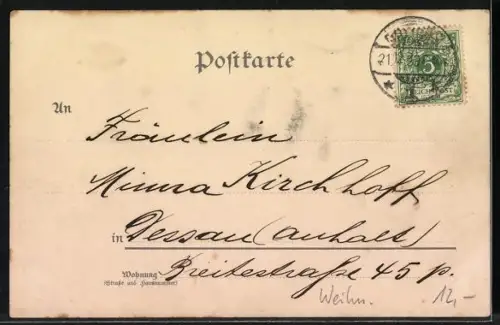 Postkarte
5
An
Fräulein
Minna Kirchhoff
in Dessau (Anhalt)
Wohnung
(Straße und Hausnummer)
Breitestraße 45 p.
Weihn. 12,-